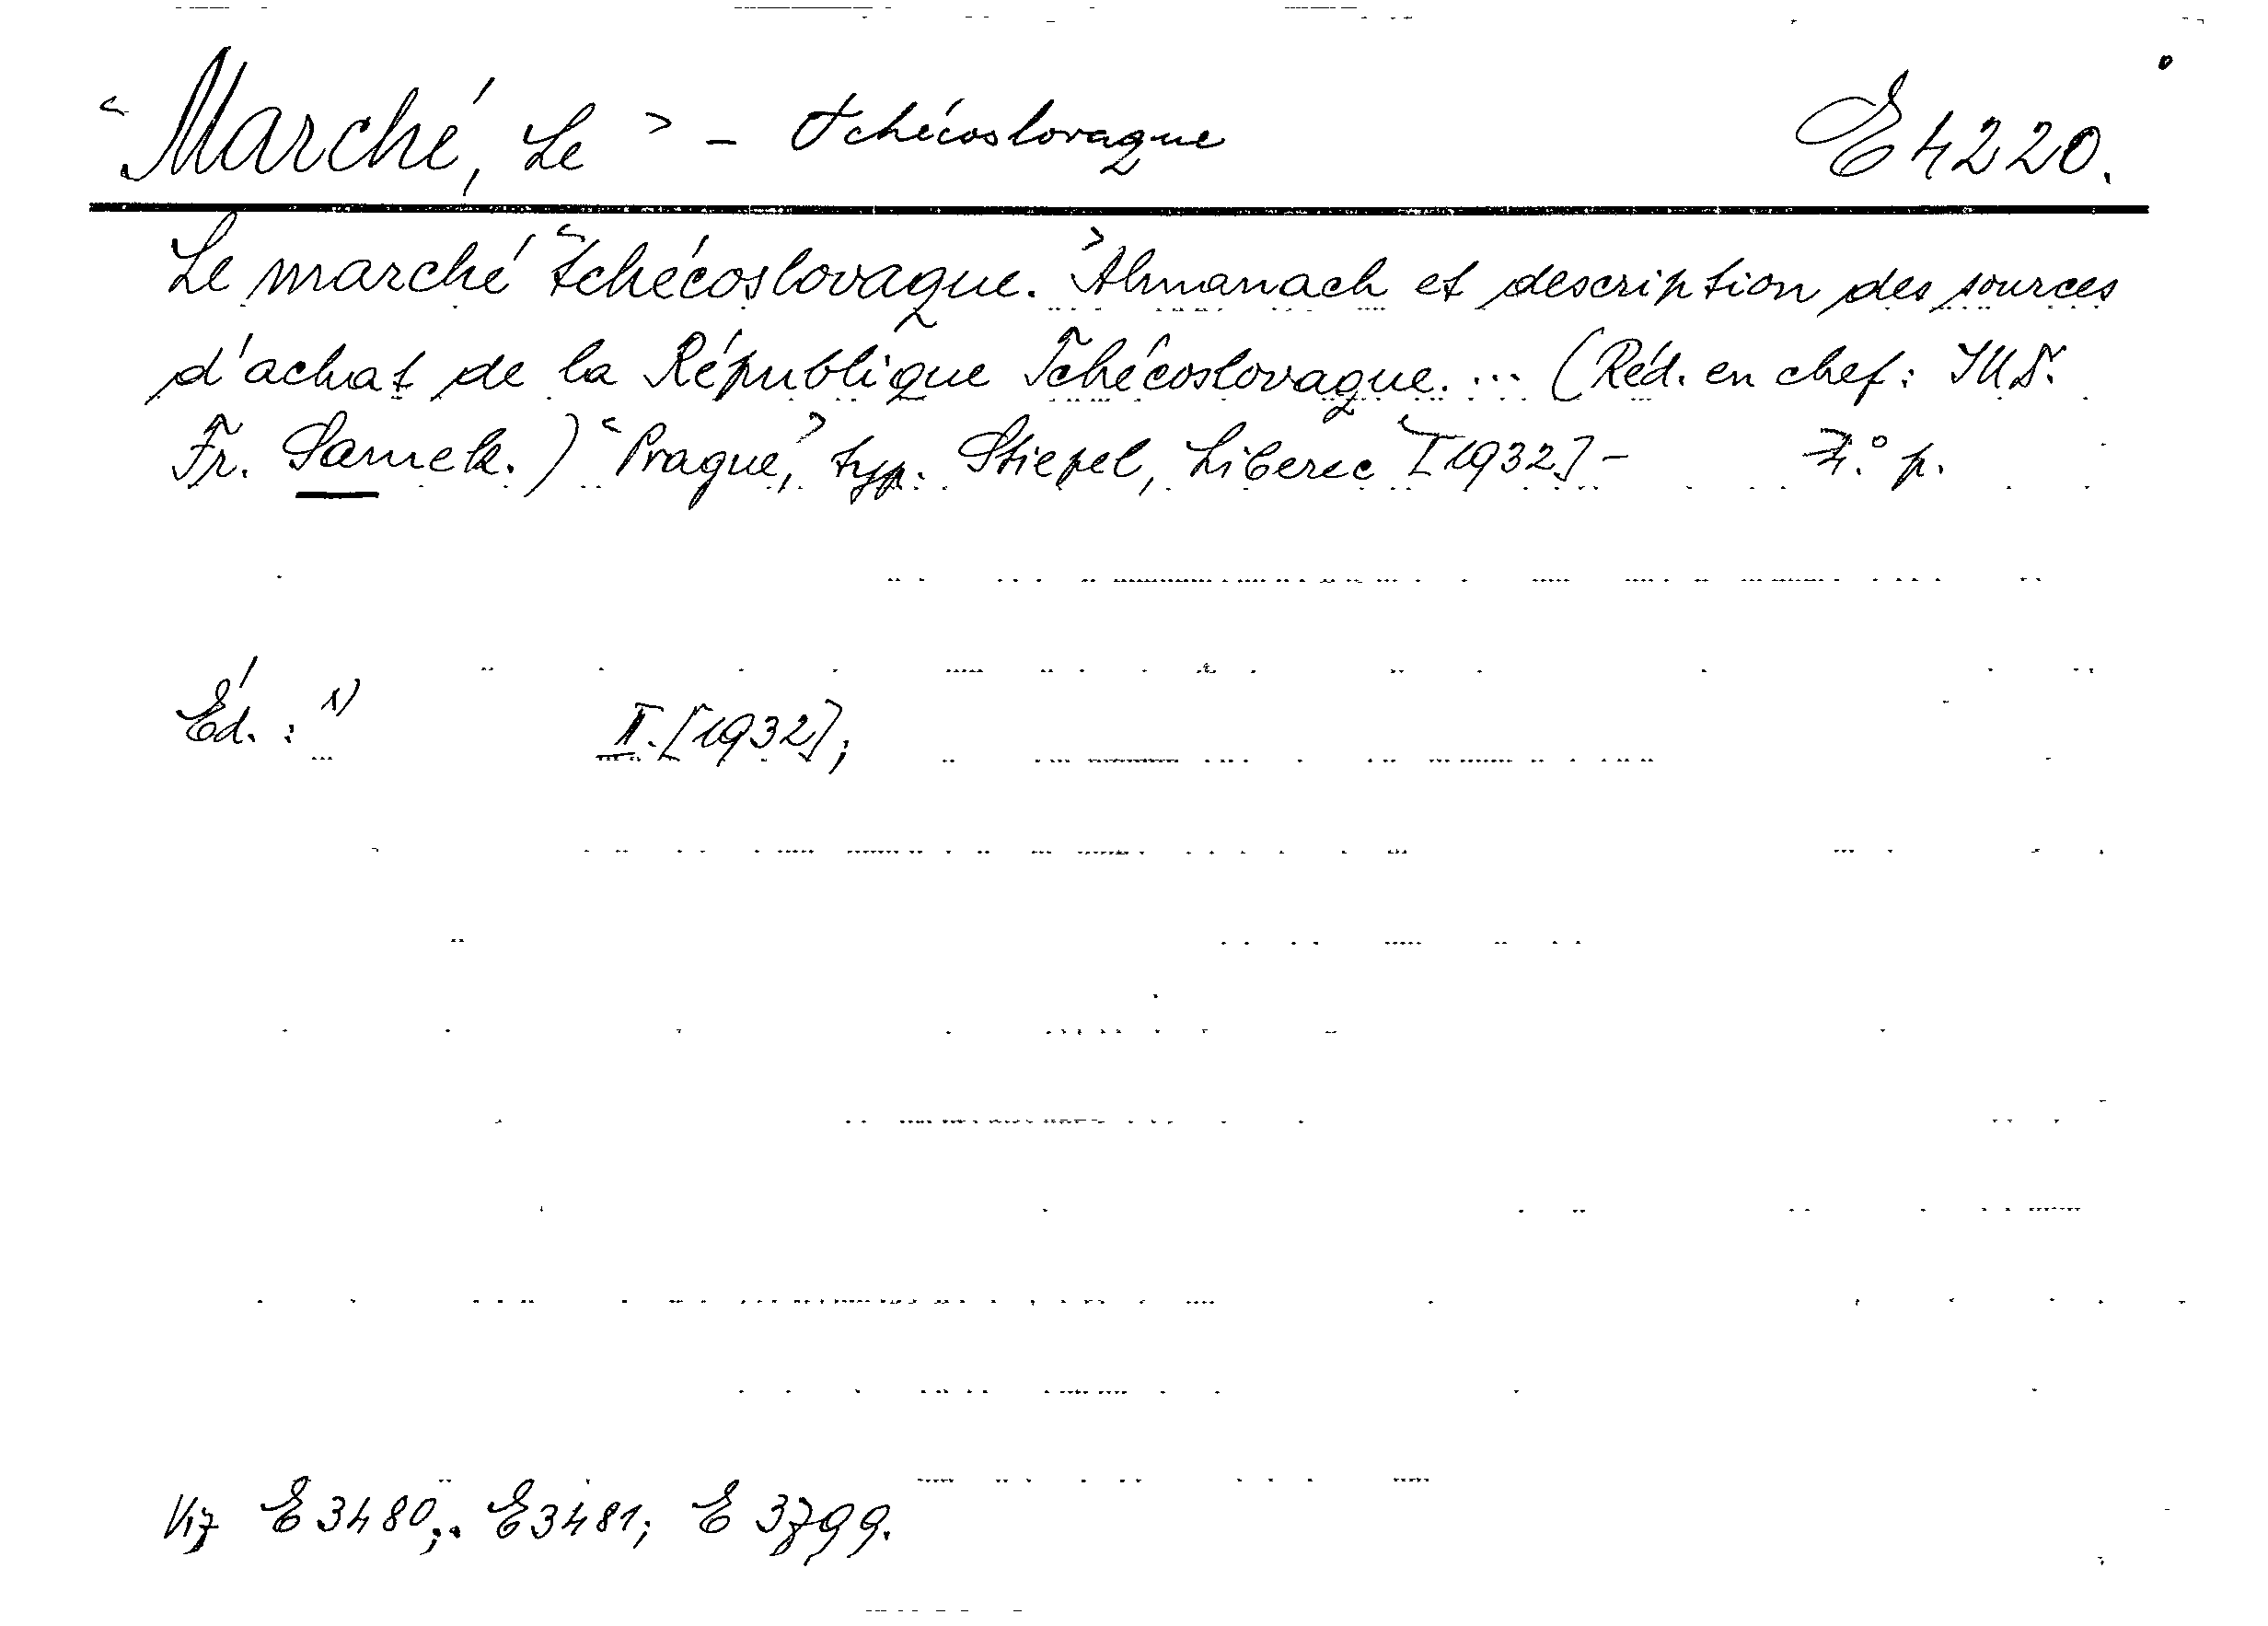 "Marché, Le" - Tchécoslovaque E 4220.
Le marché "tchécoslovaque." Almanach et description des sources
d'achat de la République Tchécoslovaque. ... (Réd. en chef: JUDr.
Fr. Samek.) "Prague," typ. Stiepel, Liberec [1932] - 4.° p.
Éd.: 1) II. [1932];
Viz E 3480; E 3481; E 3799.